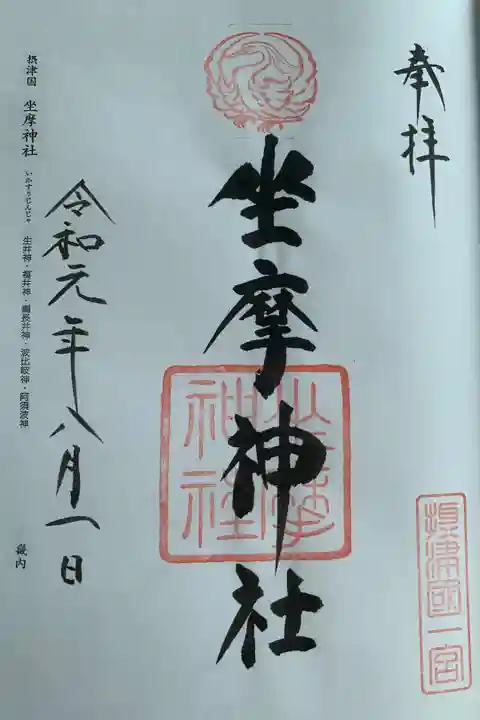 奉拝
摂津國一宮
坐摩神社
坐摩神社
令和元年八月一日
摂津国 坐摩神社 いかすりじんじゃ 生井神・福井神・綱長井神・波比祇神・阿須波神
畿内